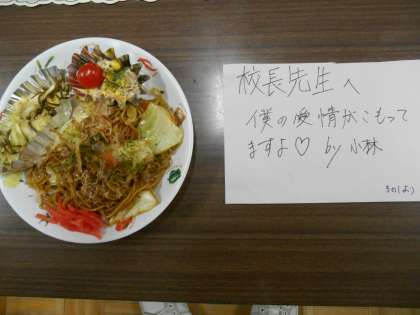 校長先生へ
僕の愛情がこもって
ますよ♡ by 小林